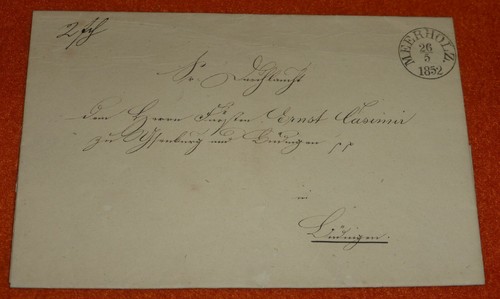 MEERHOLZ.
26
5
1852
Sr. Durchlaucht
dem Herrn Fürsten Ernst Casimir
zu Ysenburg und Büdingen pp
in
Büdingen.